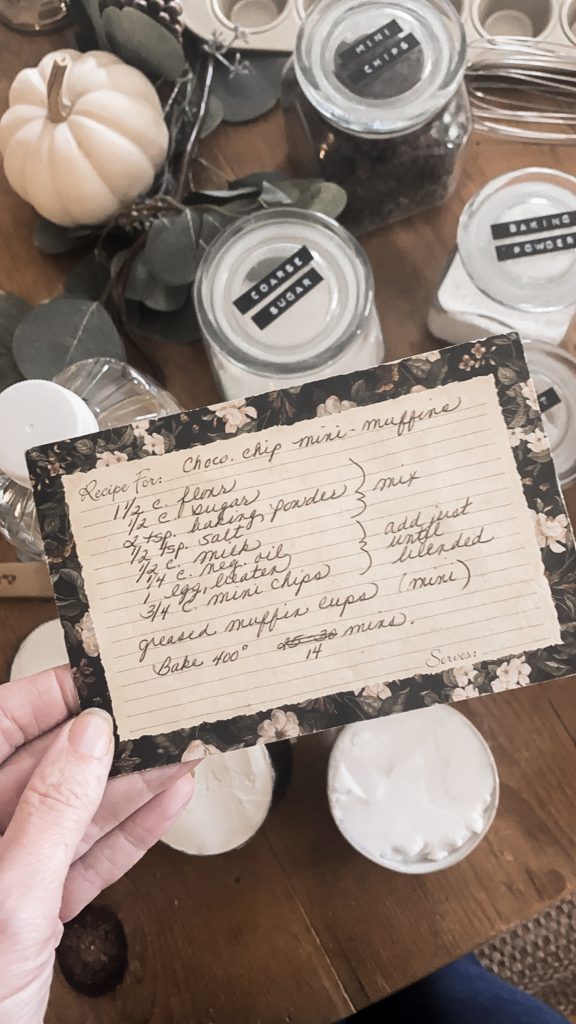 MINI
CHIPS
BAKING
POWDER
COARSE
SUGAR
Recipe For: Choco. chip mini-muffins
1 1/2 c. flour
1/2 c. sugar
2 tsp. baking powder
1/2 tsp. salt
mix
1/2 c. milk
1/4 c. veg. oil
1 egg, beaten
3/4 c. mini chips
add just
until
blended
greased muffin cups (mini)
Bake 400° 25-30 mins.
14
Serves: